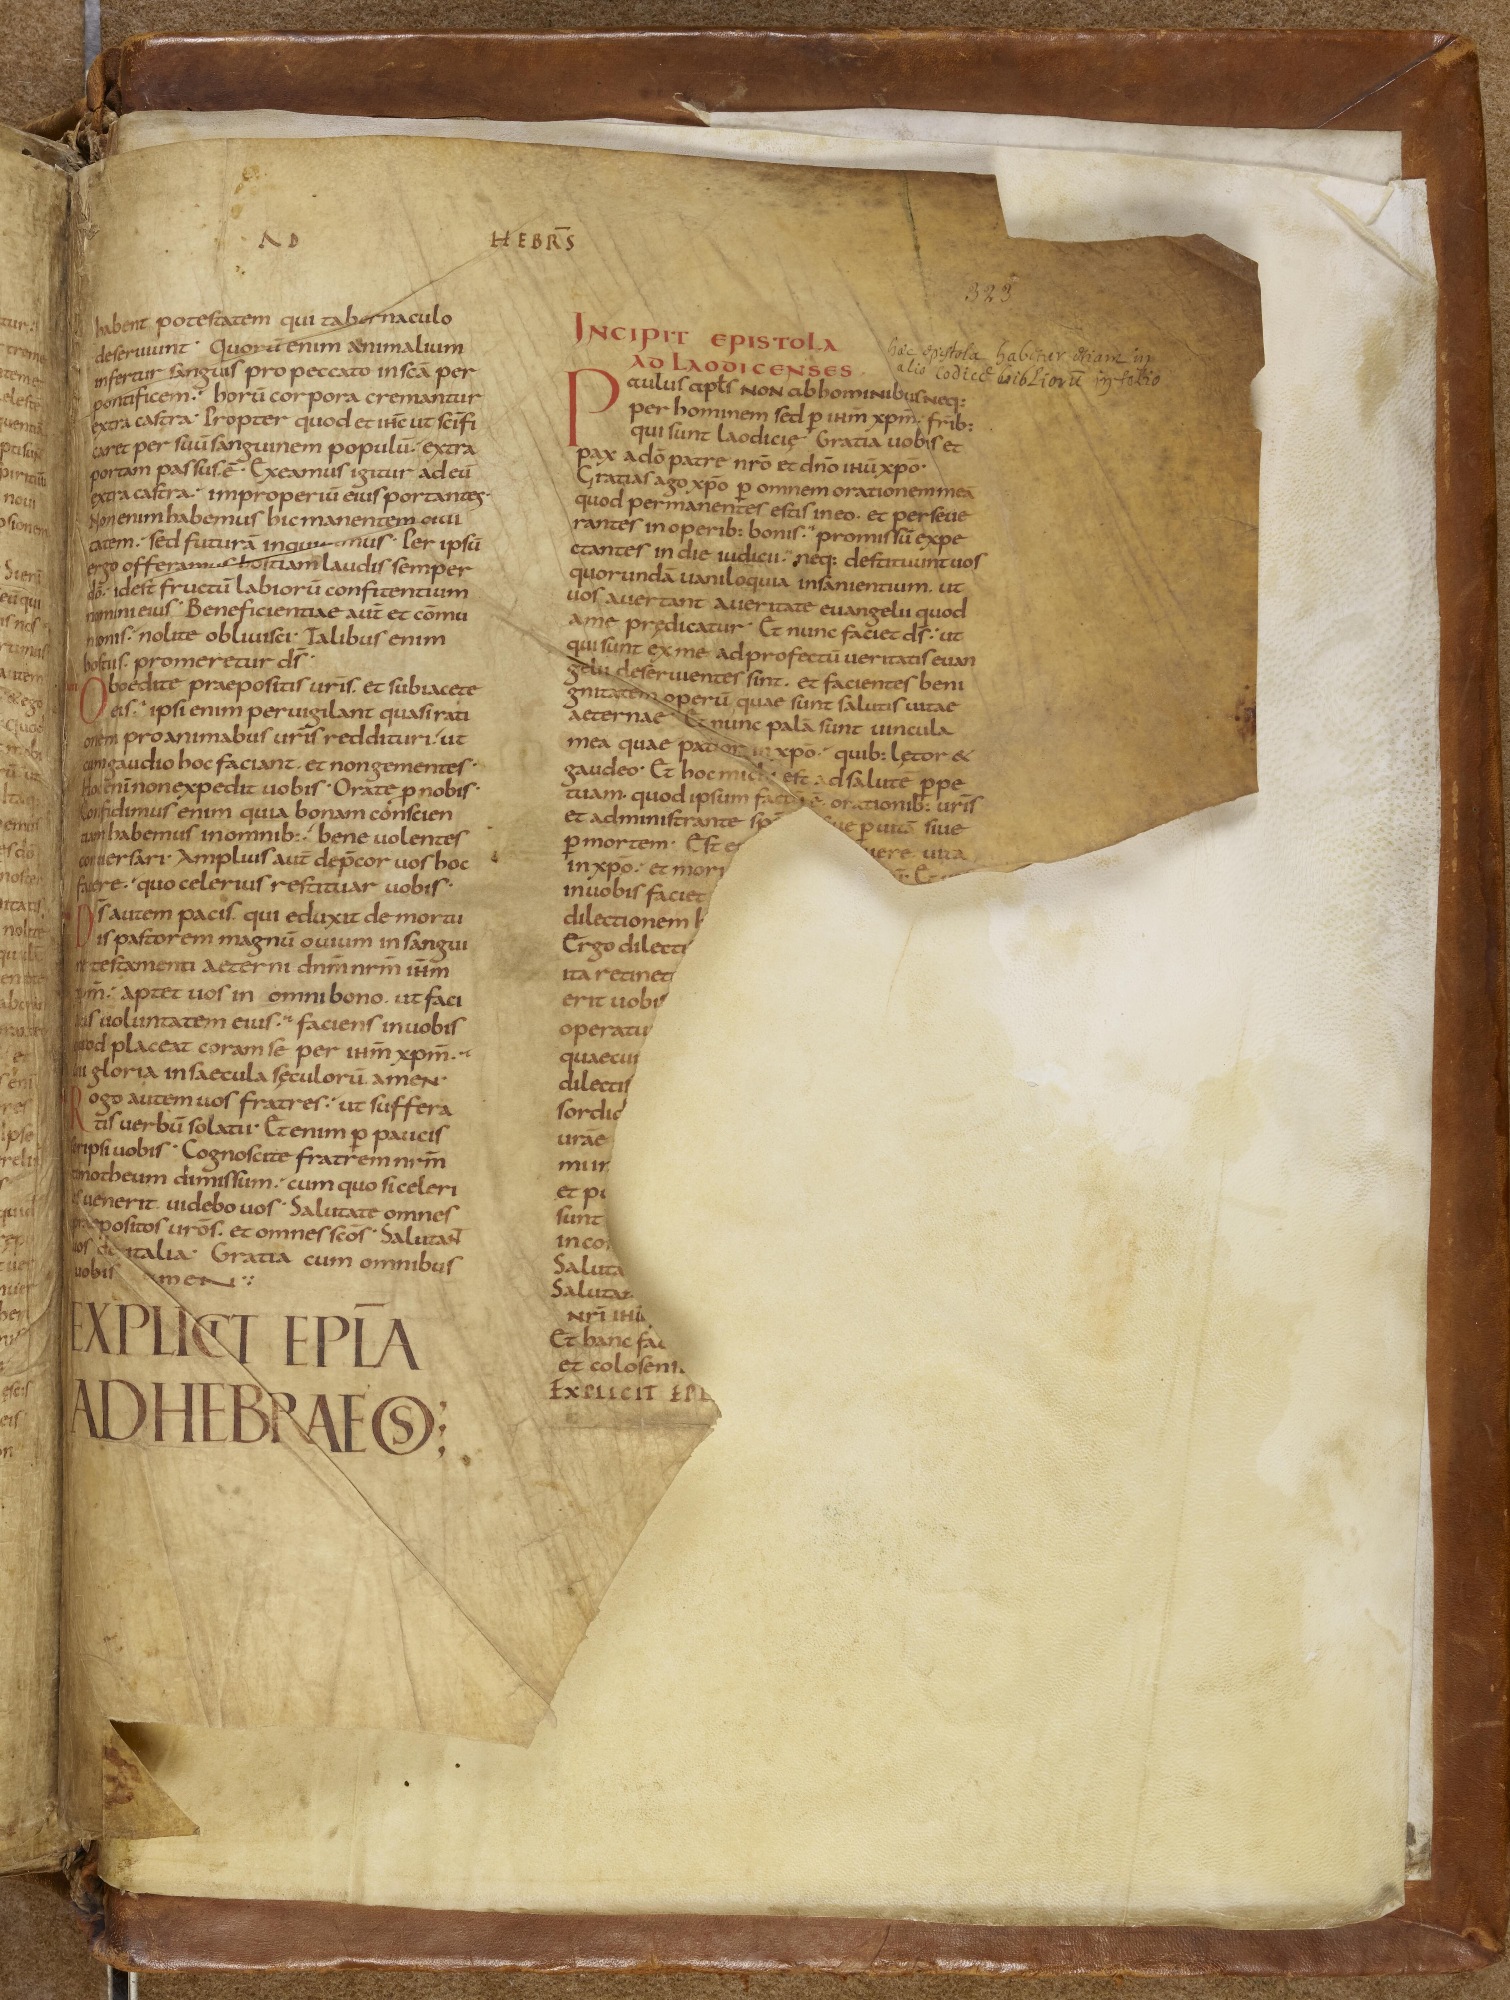 AD HEBRS̄
habent potestatem qui tabernaculo
deseruiunt· Quorū enim animalium
infertur sanguis pro peccato in scā per
pontificem· horū corpora cremantur
extra castra· Propter quod et ihc̄ ut scīfi
caret per suū sanguinem populū· extra
portam passus ē· Exeamus igitur ad eū
extra castra· improperiū eius portantes·
Non enim habemus hic manentem ciui
tatem· sed futurā inquirimus· Per ipsū
ergo offeramus hostiam laudis semper
dō· id est fructū labiorū confitentium
nomini eius· Beneficientiae aut̄ et cōmu
nionis· nolite obliuisci· Talibus enim
hostiis· promeretur ds̄·
Oboedite praepositis uris̄· et subiacete
eis· ipsi enim peruigilant quasi rati
onem pro animabus uris̄ reddituri· ut
cum gaudio hoc faciant· et non gementes·
Hoc enī non expedit uobis· Orate p nobis·
Confidimus enim quia bonam conscien
tiam habemus in omnib:· bene uolentes
conuersari· Amplius aut̄ dep̄cor uos hoc
facere· quo celerius restituar uobis·
Ds̄ autem pacis· qui eduxit de mortu
is pastorem magnū ouium in sangui
ne testamenti aeterni dnm̄ nrm̄ ihm̄
xpm̄· aptet uos in omni bono· ut faci
atis uoluntatem eius· faciens in uobis
quod placeat coram se per ihm̄ xpm̄·
cui gloria in saecula sęculorū amen·
Rogo autem uos fratres· ut suffera
tis uerbū solatii· Etenim p paucis
scripsi uobis· Cognoscite fratrem nrm̄
timotheum dimissum· cum quo si celeri
us uenerit uidebo uos· Salutate omnes
praepositos uros̄· et omnes scōs· Salutant
uos de italia· Gratia cum omnibus
uobis amen
EXPLICIT EPLA
AD HEBRAEOS;
323
INCIPIT EPISTOLA
AD LAODICENSES
hæc epistola habetur etiam in
alio codice bibliorū in folio
Paulus apls̄ non ab hominibus neq:
per hominem sed p ihm̄ xpm̄· frib̄:
qui sunt laodicię· Gratia uobis et
pax a dō patre nrō et dnō ihū xpō·
Gratias ago xpō p omnem orationem meā
quod permanentes estis in eo· et perseue
rantes in operib: bonis· promissū expe
ctantes in die iudicii· neq: destituunt uos
quorundā uaniloquia insanientium· ut
uos auertant a ueritate euangelii quod
a me prędicatur· Et nunc faciet ds̄· ut
qui sunt ex me ad profectū ueritatis euan
gelii deseruientes sint· et facientes beni
gnitatem operū quae sunt salutis uitae
aeternae· Et nunc palā sunt uincula
mea quae patior in xpō· quib: lętor &
gaudeo· Et hoc mich est ad salutē ppe
tuam· quod ipsum factū ē orationib: uris̄
et administrante spm̄ siue p uitā siue
p mortem· Est uere uita
in xpō· et mori Et
in uobis faciet
dilectionem h
Ergo dilecti
ita retinet
erit uobis
operatu
quaecu
dilectis
sordid
urae
mun
et pe
sunt
in co
Saluta
Saluta
nri ihu
Et hanc fac
et colosen
EXPLICIT EPL